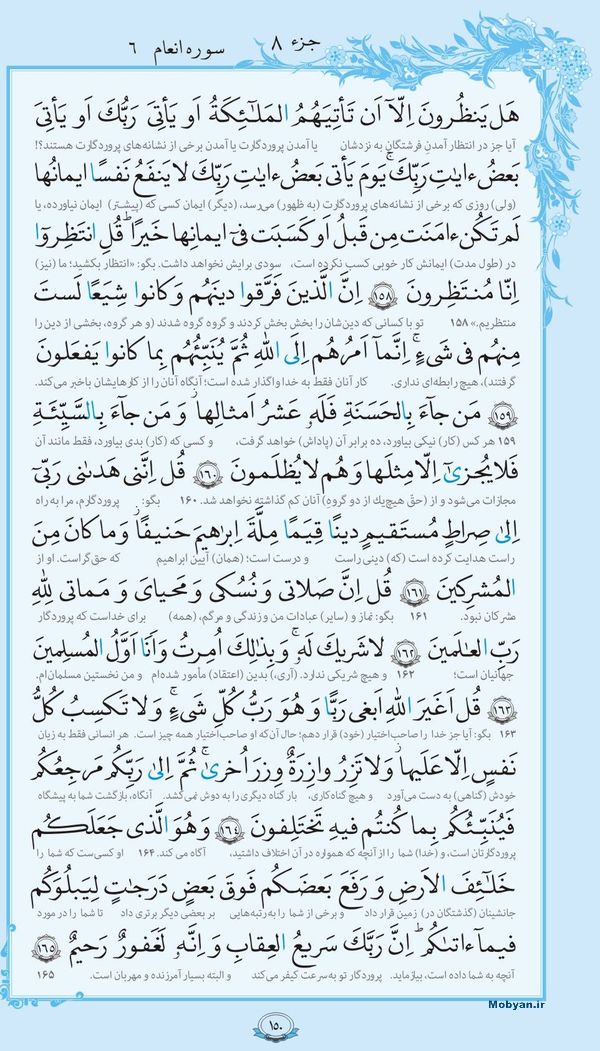 جزء ۸
سوره انعام ۶
هَل يَنظُرونَ اِلّآ اَن تَأتِيَهُمُ المَلٰٓئِكَةُ اَو يَأتِىَ رَبُّكَ اَو يَأتِىَ
آیا جز در انتظار آمدنِ فرشتگانِ به نزدشان یا آمدن پروردگارت یا آمدن برخی از نشانه‌های پروردگارت هستند؟!
بَعضُ ءايٰتِ رَبِّكَ ۗ يَومَ يَأتى بَعضُ ءايٰتِ رَبِّكَ لا يَنفَعُ نَفسًا ايمانُها
(ولی) روزی که برخی از نشانه‌های پروردگارت (به ظهور) می‌رسد، (دیگر) ایمان کسی که (پیشتر) ایمان نیاورده، یا
لَم تَكُن ءامَنَت مِن قَبلُ اَو كَسَبَت فى ايمانِها خَيرًا ۗ قُلِ انتَظِروا
در (طول مدت) ایمانش کار خوبی کسب نکرده است، سودی برایش نخواهد داشت. بگو: «انتظار بکشید؛ ما (نیز)
اِنّا مُنتَظِرونَ ﴿۱۵۸﴾ اِنَّ الَّذينَ فَرَّقوا دينَهُم وَ كانوا شِيَعًا لَستَ
منتظریم.» ۱۵۸ تو با کسانی که دین‌شان را بخش بخش کردند و گروه گروه شدند (و هر گروه، بخشی از دین را
مِنهُم فى شَىءٍ ۚ اِنَّمآ اَمرُهُم اِلَى اللهِ ثُمَّ يُنَبِّئُهُم بِما كانوا يَفعَلونَ
گرفتند)، هیچ رابطه‌ای نداری. کار آنان فقط به خدا واگذار شده است؛ آنگاه آنان را از کارهایشان باخبر می‌کند.
﴿۱۵۹﴾ مَن جآءَ بِالحَسَنَةِ فَلَهُ عَشرُ اَمثالِها ۖ وَ مَن جآءَ بِالسَّيِّئَةِ
۱۵۹ هر کس (کار) نیکی بیاورد، ده برابر آن (پاداش) خواهد گرفت، و کسی که (کار) بدی بیاورد، فقط مانند آن
فَلا يُجزىٰٓ اِلّا مِثلَها وَ هُم لا يُظلَمونَ ﴿۱۶۰﴾ قُل اِنَّنى هَدىٰنى رَبّىٓ
مجازات می‌شود و از (حقّ هیچ‌یک از دو گروهِ) آنان کم گذاشته نخواهد شد. ۱۶۰ بگو: پروردگارم، مرا به راه
اِلىٰ صِراطٍ مُستَقيمٍ دينًا قِيَمًا مِلَّةَ اِبرٰهيمَ حَنيفًا ۚ وَ ما كانَ مِنَ
راست هدایت کرده است (که) دینی راست و درست است؛ (همان) آیین ابراهیم که حق‌گراست. او از
المُشرِكينَ ﴿۱۶۱﴾ قُل اِنَّ صَلاتى وَ نُسُكى وَ مَحياىَ وَ مَماتى لِلّٰهِ
مشرکان نبود. ۱۶۱ بگو: نماز و (سایر) عبادات من و زندگی و مرگم، (همه) برای خداست که پروردگار
رَبِّ العٰلَمينَ ﴿۱۶۲﴾ لا شَريكَ لَهُ ۖ وَ بِذٰلِكَ اُمِرتُ وَ اَنَا اَوَّلُ المُسلِمينَ
جهانیان است؛ ۱۶۲ و هیچ شریکی ندارد. (آری،) بدین (اعتقاد) مأمور شده‌ام و من نخستین مسلمان‌ام.
﴿۱۶۳﴾ قُل اَغَيرَ اللهِ اَبغى رَبًّا وَ هُوَ رَبُّ كُلِّ شَىءٍ ۚ وَ لا تَكسِبُ كُلُّ
۱۶۳ بگو: آیا جز خدا را صاحب‌اختیار (خود) قرار دهم؛ حال آن‌که او صاحب‌اختیار همه چیز است. هر انسانی فقط به زیان
نَفسٍ اِلّا عَلَيها ۚ وَ لا تَزِرُ وازِرَةٌ وِزرَ اُخرىٰ ۚ ثُمَّ اِلىٰ رَبِّكُم مَرجِعُكُم
خودش (گناهی) به دست می‌آورد و هیچ گناه‌کاری، بار گناه دیگری را به دوش نمی‌کشد. آنگاه، بازگشت شما به پیشگاه
فَيُنَبِّئُكُم بِما كُنتُم فيهِ تَختَلِفونَ ﴿۱۶۴﴾ وَ هُوَ الَّذى جَعَلَكُم
پروردگارتان است، و (خدا) شما را از آنچه که همواره در آن اختلاف داشتید، آگاه می کند. ۱۶۴ او کسی‌ست که شما را
خَلٰٓئِفَ الاَرضِ وَ رَفَعَ بَعضَكُم فَوقَ بَعضٍ دَرَجٰتٍ لِيَبلُوَكُم
جانشینان (گذشتگان در) زمین قرار داد و برخی از شما را به رتبه‌هایی بر بعضی دیگر برتری داد تا شما را در مورد
فى مآ ءاتىٰكُم ۗ اِنَّ رَبَّكَ سَريعُ العِقابِ وَ اِنَّهُ لَغَفورٌ رَحيمٌ ﴿۱۶۵﴾
آنچه به شما داده است، بیازماید. پروردگار تو به‌سرعت کیفر می‌کند و البته بسیار آمرزنده و مهربان است. ۱۶۵
۱۵۰
Mobyan.ir